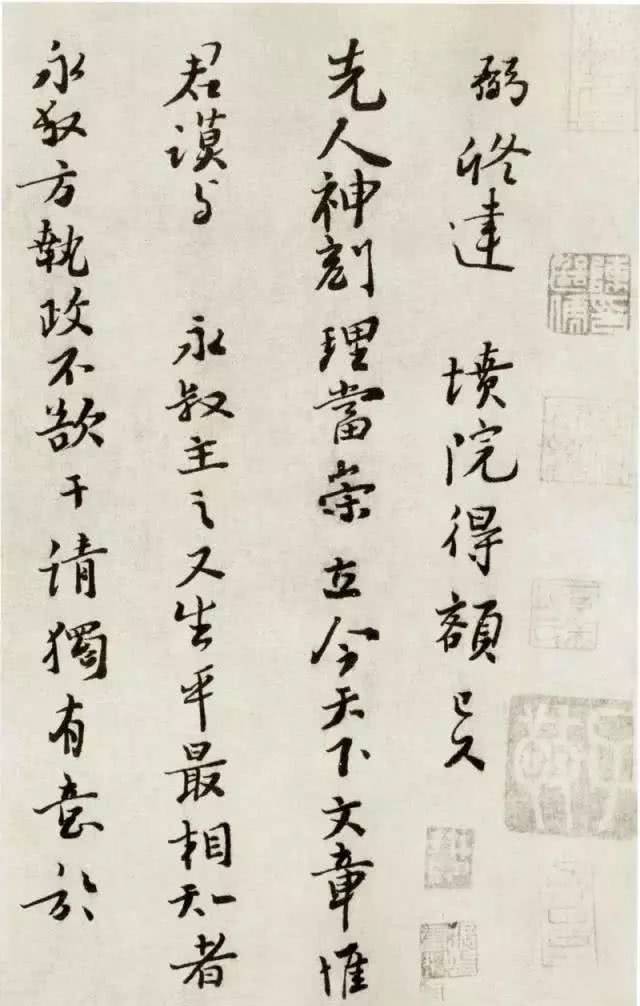 弼修建　墳院得額已久
先人神刻理當崇立今天下文章惟
君謨与　永叔主之又生平最相知者
永叔方執政不欲干請獨有意於